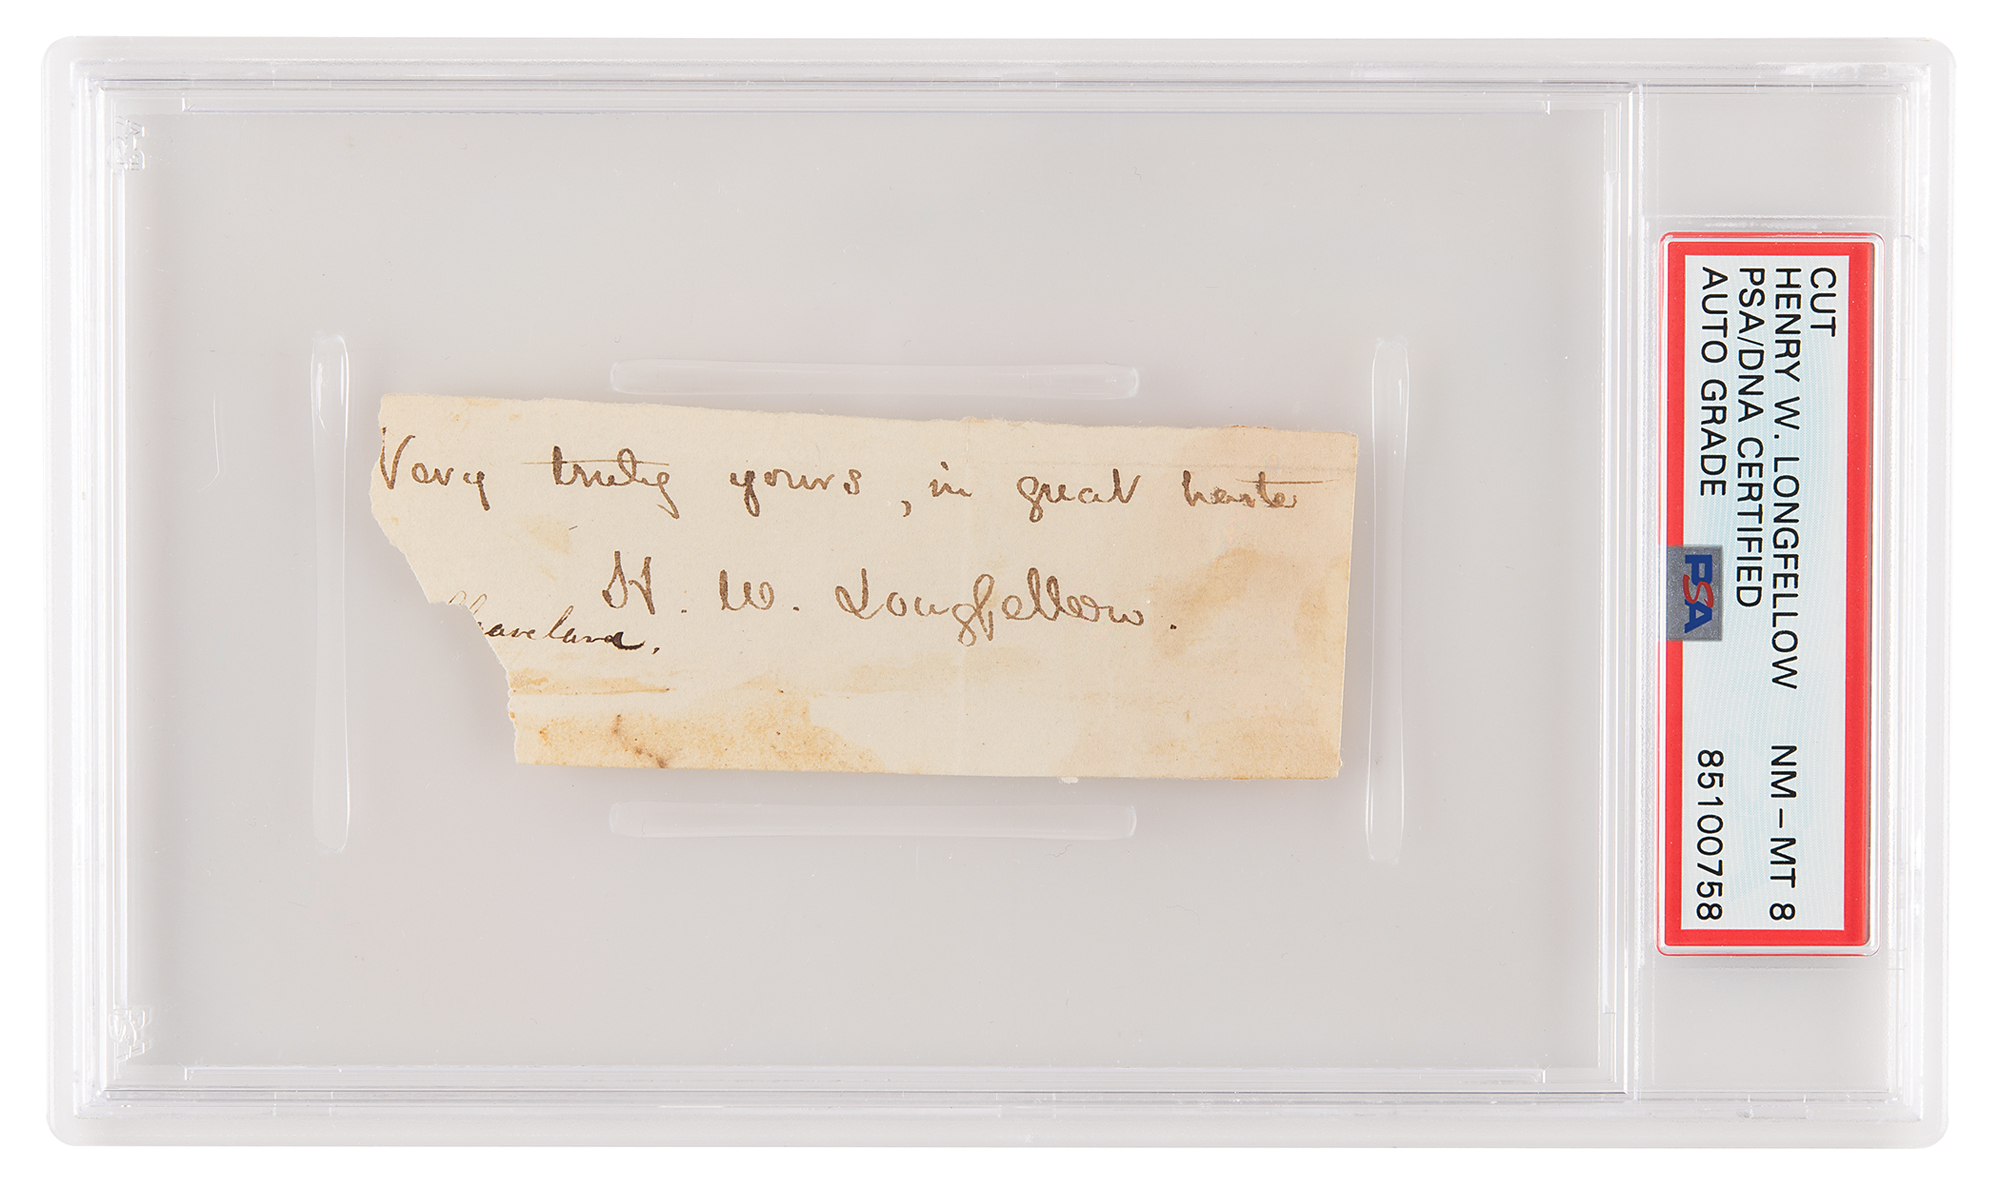 Very truly yours, in great haste
H. W. Longfellow.
CUT
HENRY W. LONGFELLOW NM-MT 8
PSA/DNA CERTIFIED
AUTO GRADE 85100758
PSA